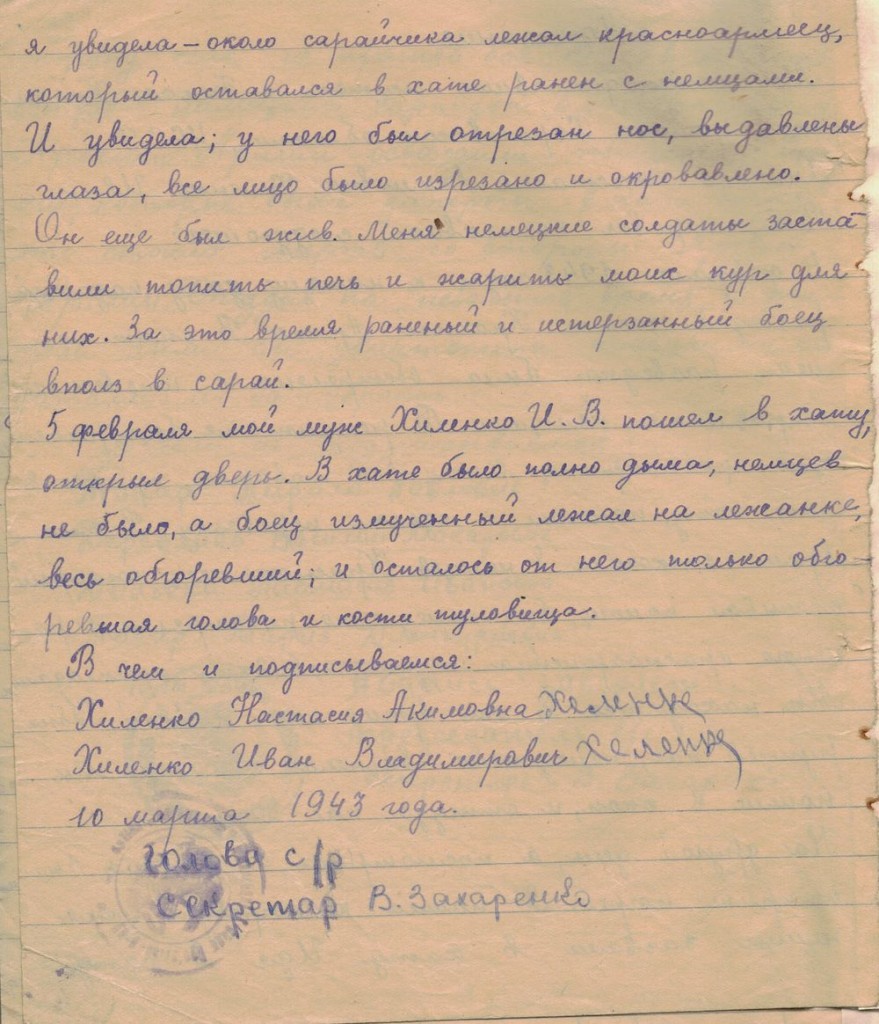 я увидела – около сарайчика лежал красноармеец,
который оставался в хате ранен с немцами.
И увидела; у него был отрезан нос, выдавлены
глаза, все лицо было изрезано и окровавлено.
Он еще был жив. Меня немецкие солдаты заста-
вили топить печь и жарить моих кур для
них. За это время раненый и истерзанный боец
вполз в сарай.
5 февраля мой муж Хиленко И. В. пошел в хату,
открыл дверь. В хате было полно дыма, немцев
не было, а боец измученный лежал на лежанке,
весь обгоревший; и осталось от него только обго-
ревшая голова и кости туловища.
В чем и подписываемся:
Хиленко Настасия Акимовна Хеленк
Хиленко Иван Владимирович Хеленк
10 марта 1943 года.
Голова с/р
Секретар В. Захаренко